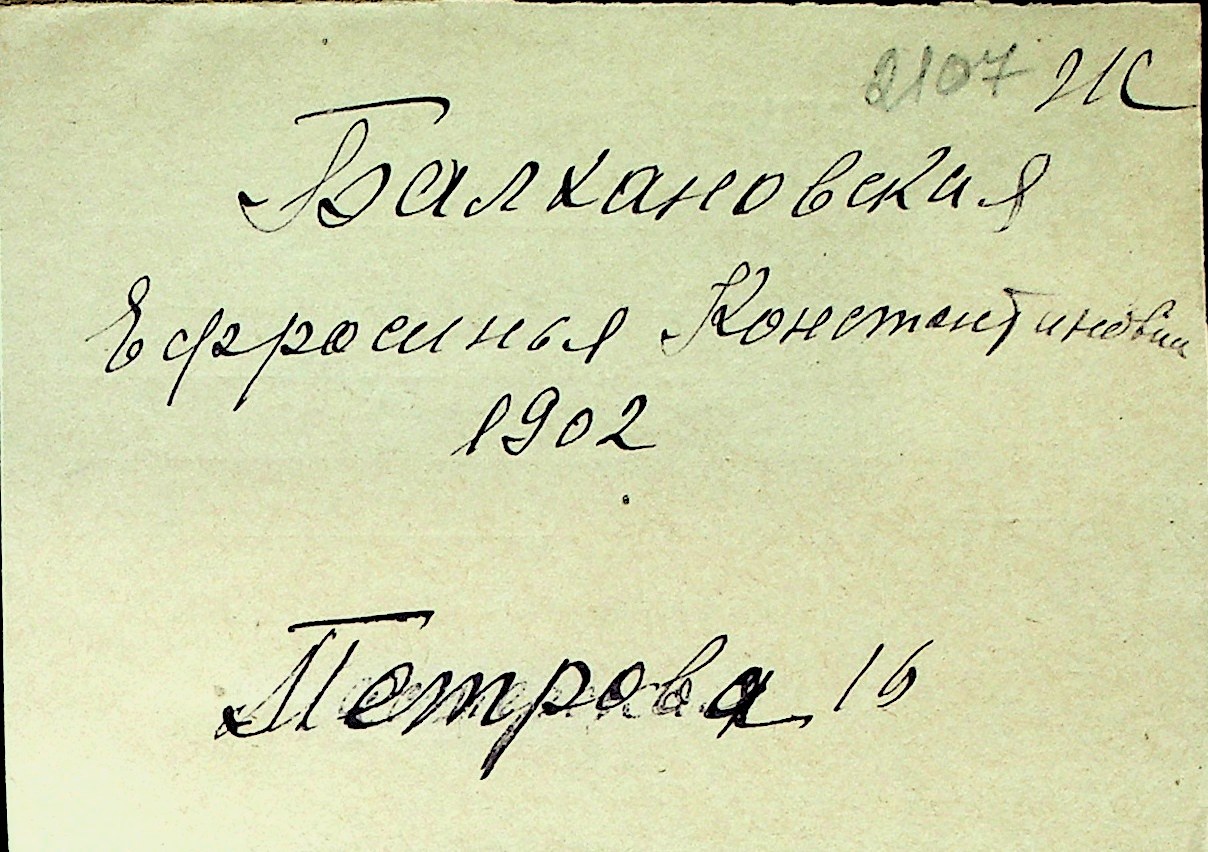 2107 ИС
Балхановская
Ефросинья Константинов
1902
Петрова 16